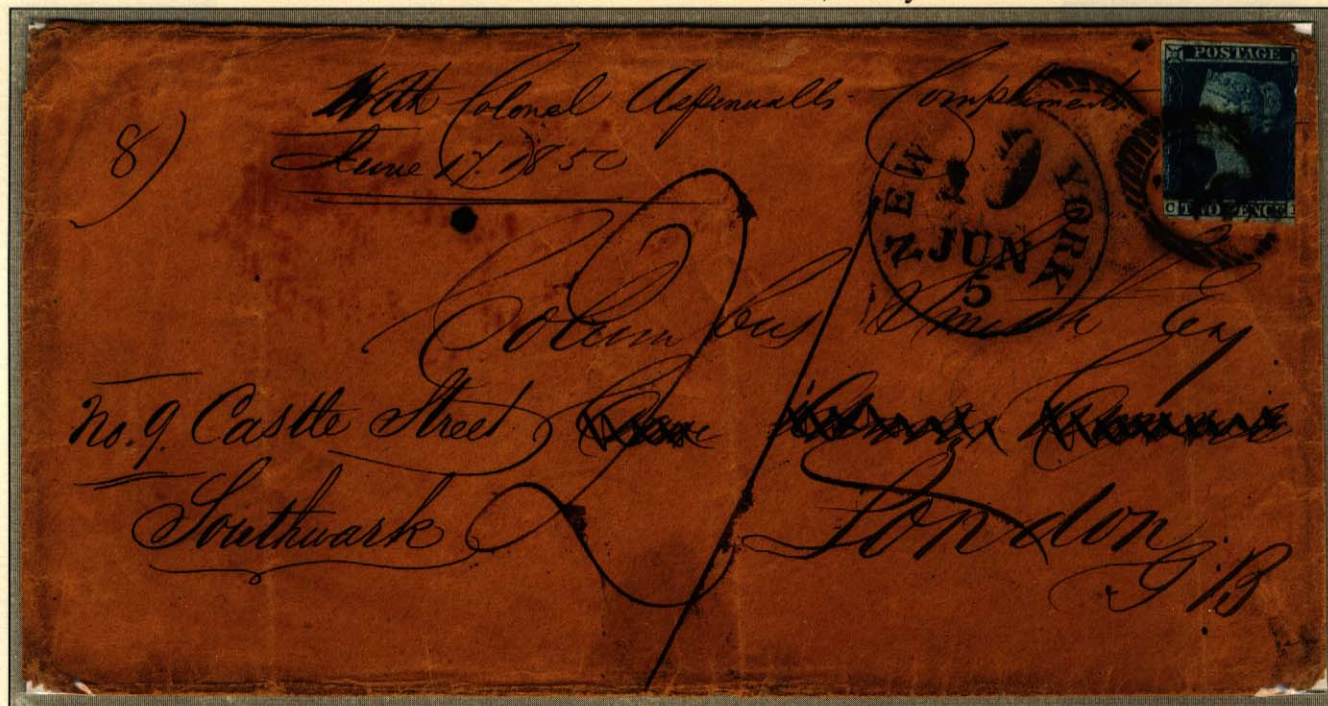 With Colonel Aspinwalls Compliments
June 17. 1850
8)
POSTAGE
C TWO PENCE
NEW YORK
19
JUN
5
Columbus Smith Esq
No. 9. Castle Street
Southwark
London
G.B